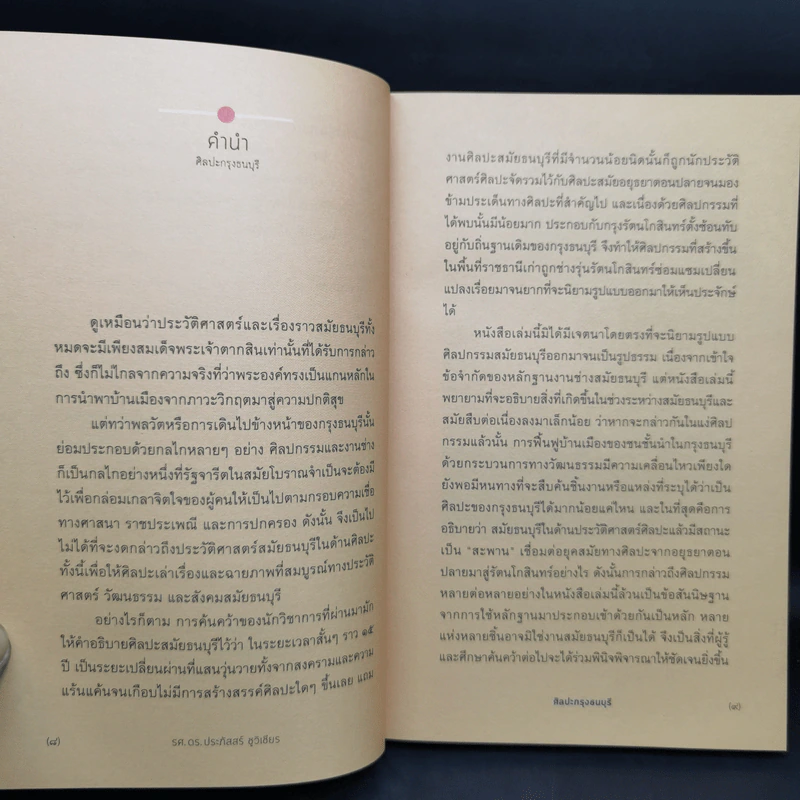 คำนำ
ศิลปะกรุงธนบุรี
ดูเหมือนว่าประวัติศาสตร์และเรื่องราวสมัยธนบุรีทั้ง
หมดจะมีเพียงสมเด็จพระเจ้าตากสินเท่านั้นที่ได้รับการกล่าว
ถึง ซึ่งก็ไม่ไกลจากความจริงที่ว่าพระองค์ทรงเป็นแกนหลักใน
การนำพาบ้านเมืองจากภาวะวิกฤตมาสู่ความปกติสุข
แต่ทว่าพลวัตหรือการเดินไปข้างหน้าของกรุงธนบุรีนั้น
ย่อมประกอบด้วยกลไกหลายๆ อย่าง ศิลปกรรมและงานช่าง
ก็เป็นกลไกอย่างหนึ่งที่รัฐจารีตในสมัยโบราณจำเป็นจะต้องมี
ไว้เพื่อกล่อมเกลาจิตใจของผู้คนให้เป็นไปตามกรอบความเชื่อ
ทางศาสนา ราชประเพณี และการปกครอง ดังนั้น จึงเป็นไป
ไม่ได้ที่จะงดกล่าวถึงประวัติศาสตร์สมัยธนบุรีในด้านศิลปะ
ทั้งนี้เพื่อให้ศิลปะเล่าเรื่องและฉายภาพที่สมบูรณ์ทางประวัติ
ศาสตร์ วัฒนธรรม และสังคมสมัยธนบุรี
อย่างไรก็ตาม การค้นคว้าของนักวิชาการที่ผ่านมามัก
ให้คำอธิบายศิลปะสมัยธนบุรีไว้ว่า ในระยะเวลาสั้นๆ ราว ๑๕
ปี เป็นระยะเปลี่ยนผ่านที่แสนวุ่นวายทั้งจากสงครามและความ
แร้นแค้นจนเกือบไม่มีการสร้างสรรค์ศิลปะใดๆ ขึ้นเลย แถม
(๘)
รศ.ดร.ประภัสสร์ ชูวิเชียร
งานศิลปะสมัยธนบุรีที่มีจำนวนน้อยนิดนั้นก็ถูกนักประวัติ
ศาสตร์ศิลปะจัดรวมไว้กับศิลปะสมัยอยุธยาตอนปลายจนมอง
ข้ามประเด็นทางศิลปะที่สำคัญไป และเนื่องด้วยศิลปกรรมที่
ได้พบนั้นมีน้อยมาก ประกอบกับกรุงรัตนโกสินทร์ตั้งซ้อนทับ
อยู่กับถิ่นฐานเดิมของกรุงธนบุรี จึงทำให้ศิลปกรรมที่สร้างขึ้น
ในพื้นที่ราชธานีเก่าถูกช่างรุ่นรัตนโกสินทร์ซ่อมแซมเปลี่ยน
แปลงเรื่อยมาจนยากที่จะนิยามรูปแบบออกมาให้เห็นประจักษ์
ได้
หนังสือเล่มนี้มิได้มีเจตนาโดยตรงที่จะนิยามรูปแบบ
ศิลปกรรมสมัยธนบุรีออกมาจนเป็นรูปธรรม เนื่องจากเข้าใจ
ข้อจำกัดของหลักฐานงานช่างสมัยธนบุรี แต่หนังสือเล่มนี้
พยายามที่จะอธิบายสิ่งที่เกิดขึ้นในช่วงระหว่างสมัยธนบุรีและ
สมัยสืบต่อเนื่องลงมาเล็กน้อย ว่าหากจะกล่าวกันในแง่ศิลป
กรรมแล้วนั้น การฟื้นฟูบ้านเมืองของชนชั้นนำในกรุงธนบุรี
ด้วยกระบวนการทางวัฒนธรรมมีความเคลื่อนไหวเพียงใด
ยังพอมีหนทางที่จะสืบค้นชิ้นงานหรือแหล่งที่ระบุได้ว่าเป็น
ศิลปะของกรุงธนบุรีได้มากน้อยแค่ไหน และในที่สุดคือการ
อธิบายว่า สมัยธนบุรีในด้านประวัติศาสตร์ศิลปะแล้วมีสถานะ
เป็น "สะพาน" เชื่อมต่อยุคสมัยทางศิลปะจากอยุธยาตอน
ปลายมาสู่รัตนโกสินทร์อย่างไร ดังนั้นการกล่าวถึงศิลปกรรม
หลายต่อหลายอย่างในหนังสือเล่มนี้ล้วนเป็นข้อสันนิษฐาน
จากการใช้หลักฐานมาประกอบเข้าด้วยกันเป็นหลัก หลาย
แห่งหลายชิ้นอาจมิใช่งานสมัยธนบุรีก็เป็นได้ จึงเป็นสิ่งที่ผู้รู้
และศึกษาค้นคว้าต่อไปจะได้ร่วมพินิจพิจารณาให้ชัดเจนยิ่งขึ้น
ศิลปะกรุงธนบุรี
(๙)